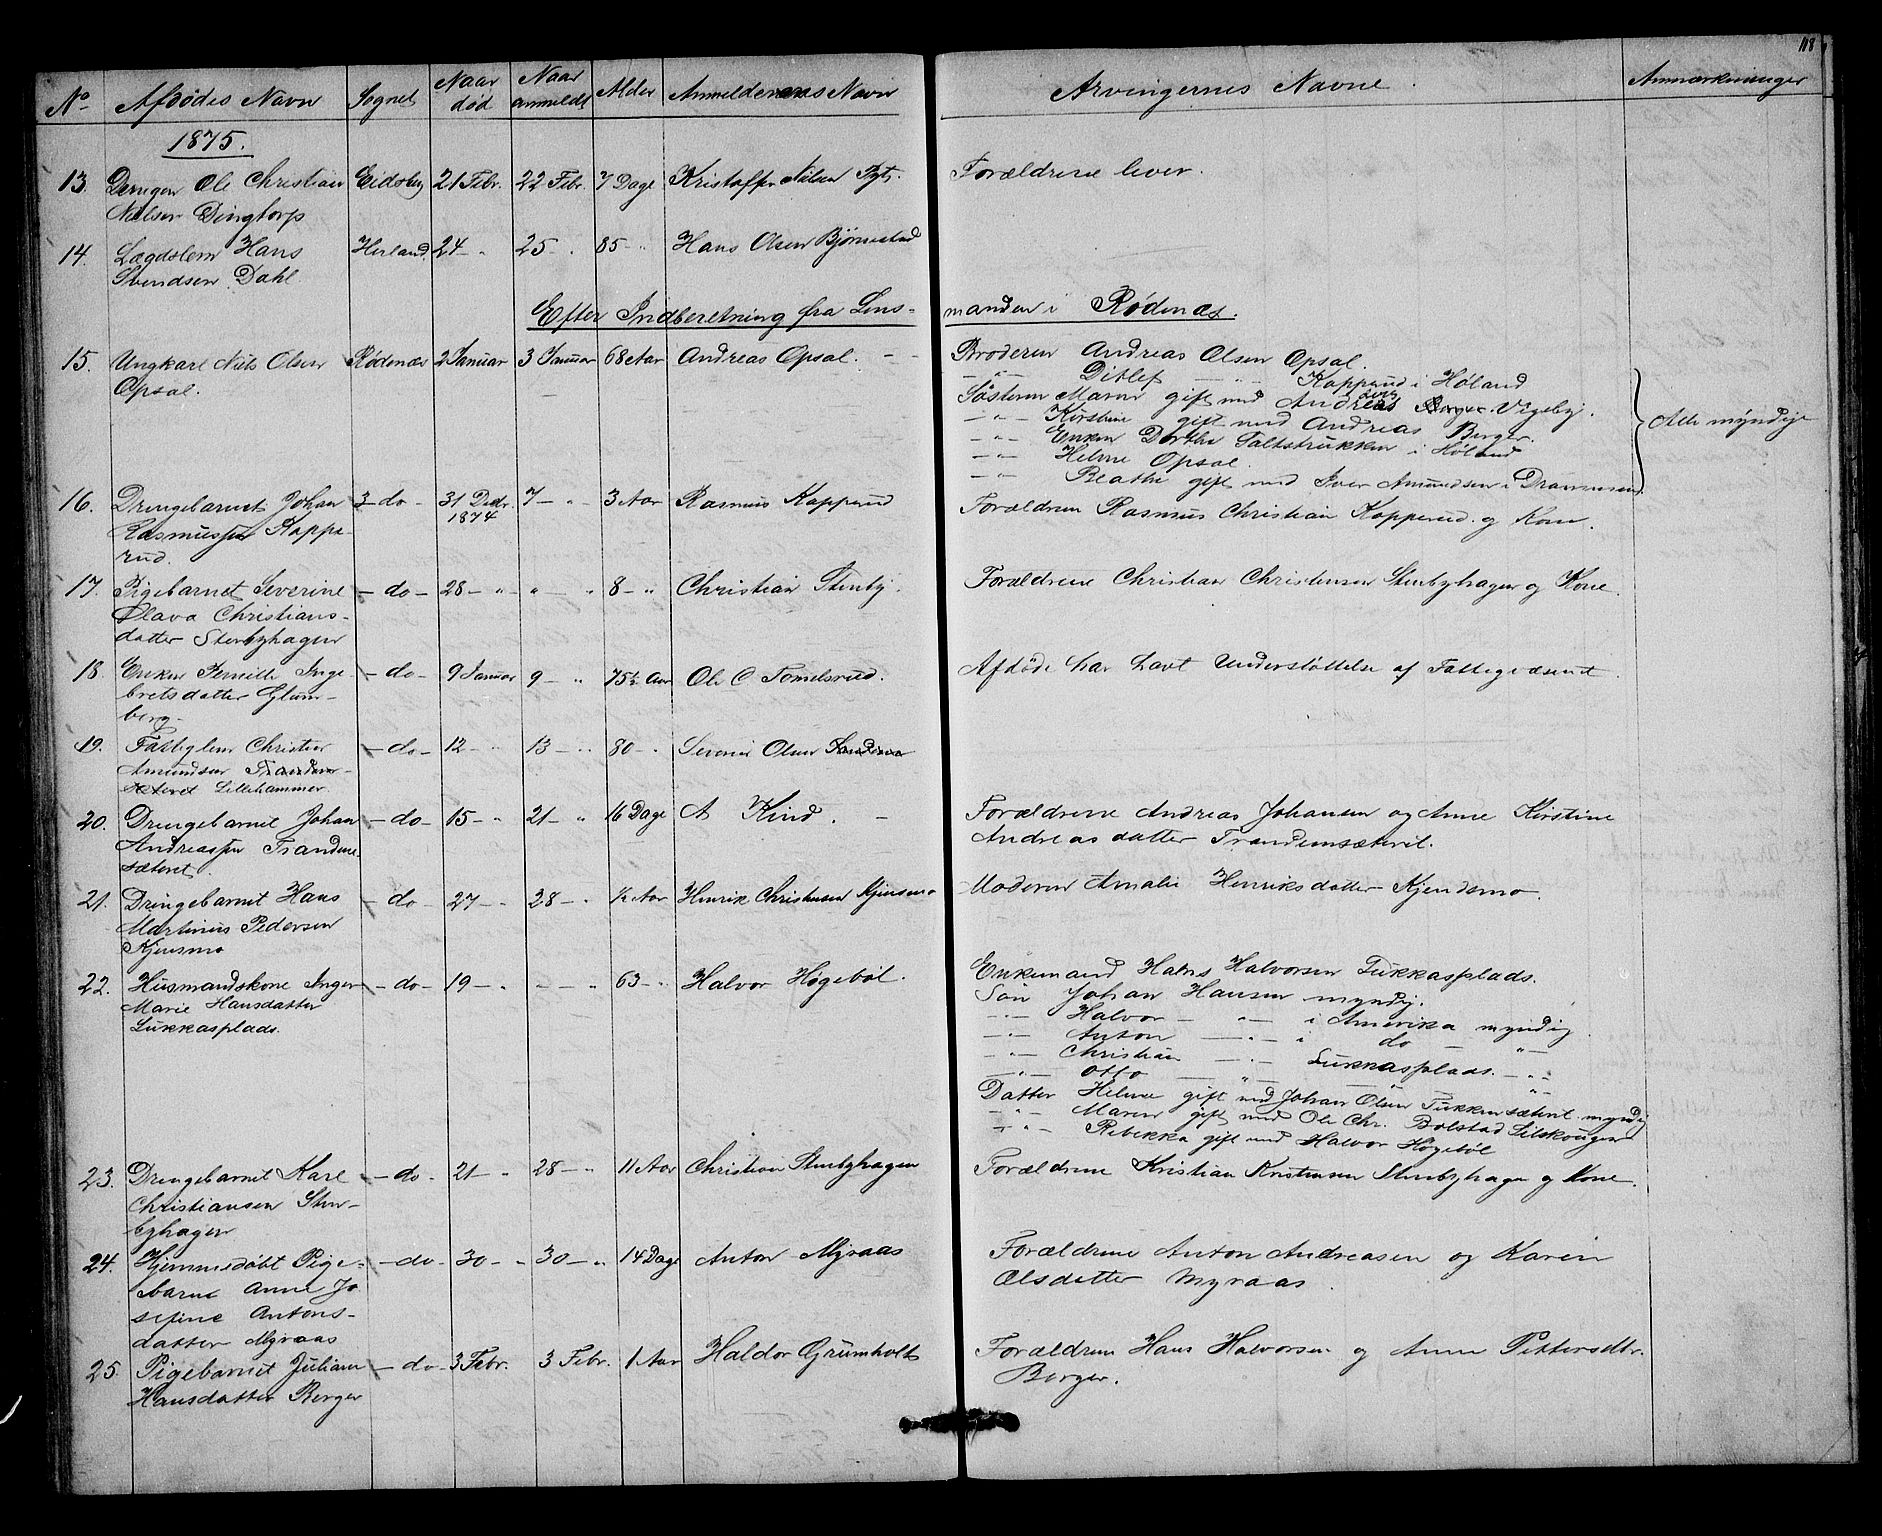 118
No Afdødes Navn Sognet Naar død Naar anmeldt Alder Anmelderens Navn Arvingernes Navne Anmærkninger
1875.
13. Drengen Ole Christian Eidsberg 21 Febr. 22 Febr. 7 Dage Kristoffer Nilsen Forældrene lever.
Nielsen Dingtorp
14. Lægdslem Hans Herland 24 - " 25 - " 85 - " Hans Olsen Bjørnestad
Svendsen Dahl.
Efter Indberetning fra Lens-
manden i Rødenæs.
15. Ungkarl Niels Olsen Rødenæs 2 Januar 3 Januar 68 Aar Andreas Opsal. Broderen Andreas Olsen Opsal.
Opsal.
- " - Ditlef - " - Kopperud i Høland
Søsteren Maren gift med Andreas Vigeby.
- " - Kirstine gift med Andreas Berger.
- " - Enken Dorthe Saltstrukken i Høland
- " - Helene Opsal.
- " - Beathe gift med Iver Amundsen i Drammen
Alle myndige
16. Drengebarnet Johan - do - 31 Decbr. 1874 7 - " 3 Aar Rasmus Kopperud Forældrene Rasmus Christian Kopperud og Kone.
Rasmussen Koppe-
rud.
17. Pigebarnet Severine - do - 28 - " - " - " 8 - " Christian Stenby. Forældrene Christian Christensen Stenbyhagen og Kone.
Olava Christians-
datter Stenbyhagen
18. Enken Pernille Inge- - do - 9 Januar 9 - " 75½ Aar Ole C Tomelsrud. Afdøde har havt Understøttelse af Fattigvæsenet.
bretsdatter Glom-
berg.
19. Fattiglem Christen - do - 12 - " 13 - " 80 - " Severin Olsen
Amundsen Trandem-
sæteret Lillehammer.
20. Drengebarnet Johan - do - 15 - " 21 - " 16 Dage A Kind. Forældrene Andreas Johansen og Anne Kirstine
Andreassen Trandem-
sæteret.
Andreasdatter Trandemsæteret.
21. Drengebarnet Hans - do - 27 - " 28 - " ½ Aar Henrik Christensen Kjensmo Moderen Amalie Henriksdatter Kjendsmo.
Martinius Pedersen
Kjensmo
22. Husmandskone Inger - do - 19 - " - " 63 - " Halvor Høgebøl. Enkemand Hans Halvorsen Lukkasplads.
Marie Hansdatter
Lukkasplads.
Søn Johan Hansen myndig.
- " - Halvor - " - i Amerika myndig
- " - Anton - " - i do - " -
- " - Christian - " - Lukkasplads. - " -
- " - Otto - " - - " -
Datter Helene gift med Johan Olsen Tukkensæteret myndig
- " - Maren gift med Ole Chr. Bolstad Lilskougen
- " - Rebekka gift med Halvor Høgebøl
23. Drengebarnet Karl - do - 21 - " 28 - " 11 Aar Christian Stenbyhagen Forældrene Kristian Kristensen Stenbyhagen og Kone.
Christiansen Sten-
byhagen
24. Hjemmedøbt Pige- - do - 30 - " 30 - " 14 Dage Anton Myraas Forældrene Anton Andreasen og Karen
barn Anne Jo
sefine Antons-
datter Myraas
Olsdatter Myraas.
25. Pigebarnet Juliane - do - 3 Febr. 3 Febr. 1 Aar Haldor Grumholt Forældrene Hans Halvorsen og Anne Pettersdtr.
Hansdatter Berger
Berger.